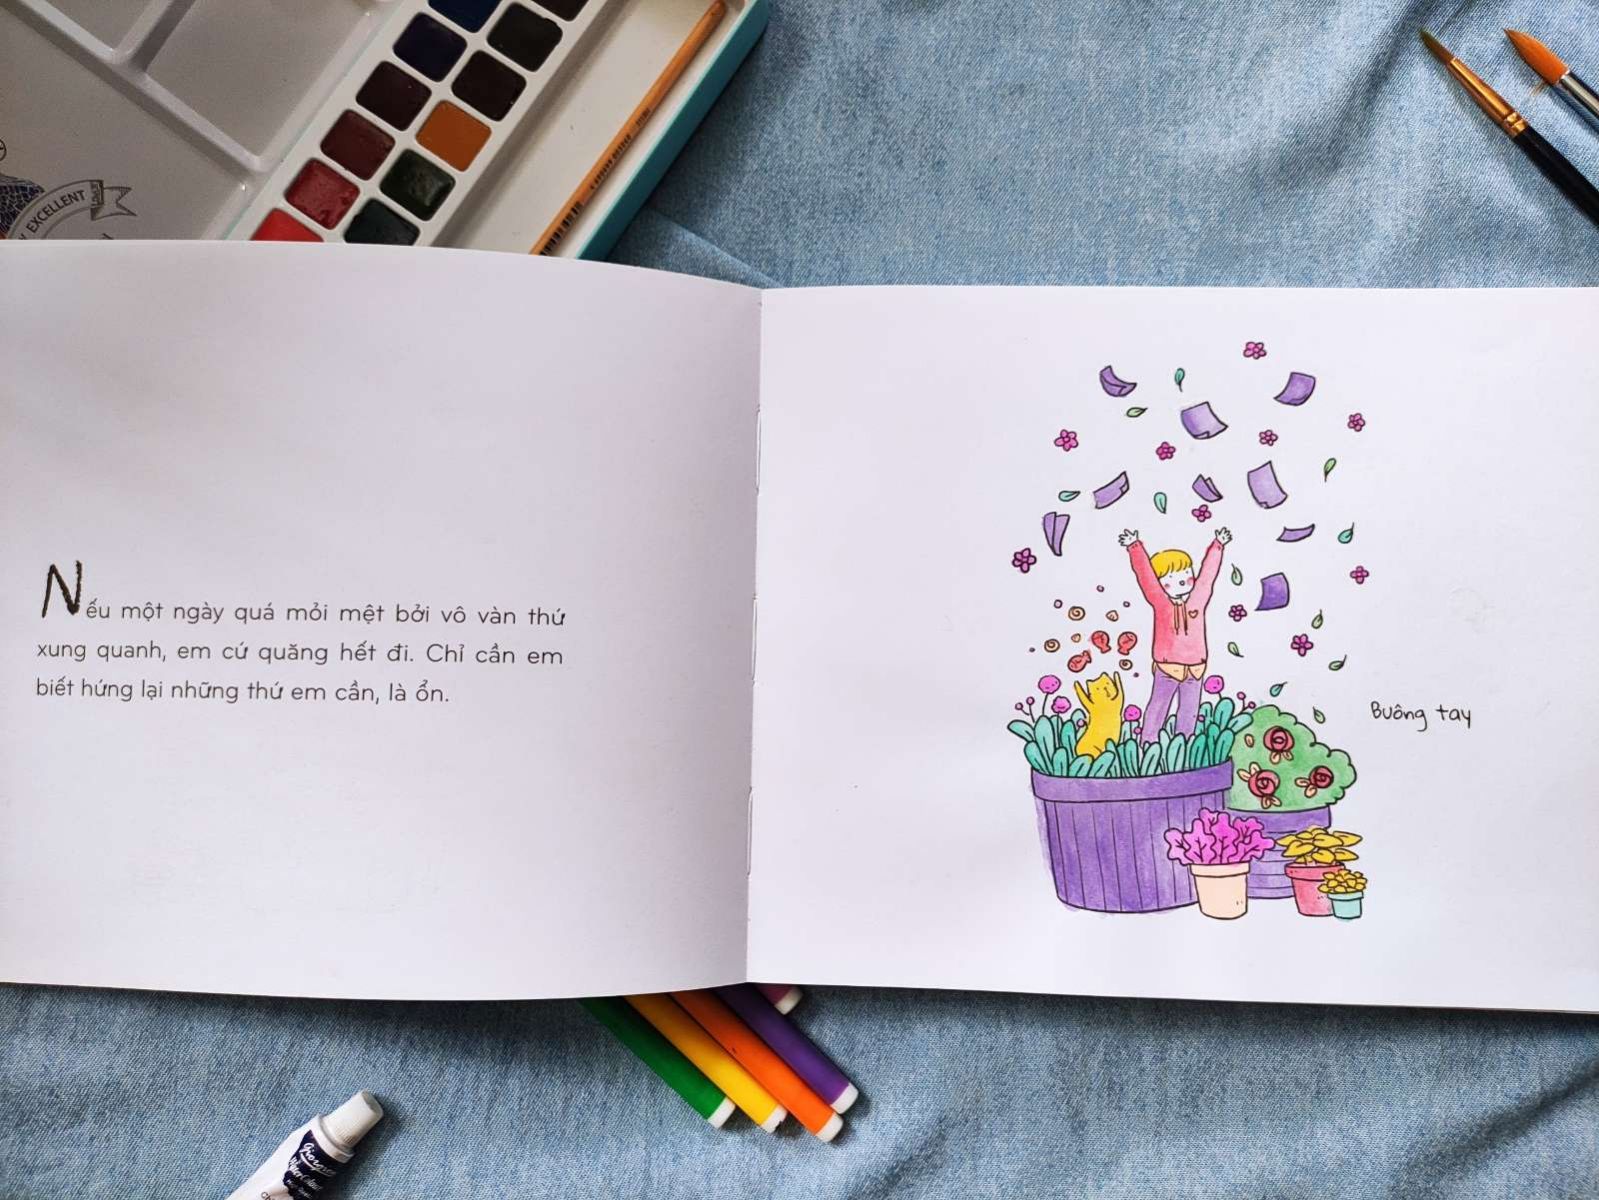 EXCELLENT
Nếu một ngày quá mỏi mệt bởi vô vàn thứ
xung quanh, em cứ quăng hết đi. Chỉ cần em
biết hứng lại những thứ em cần, là ổn.
Buông tay